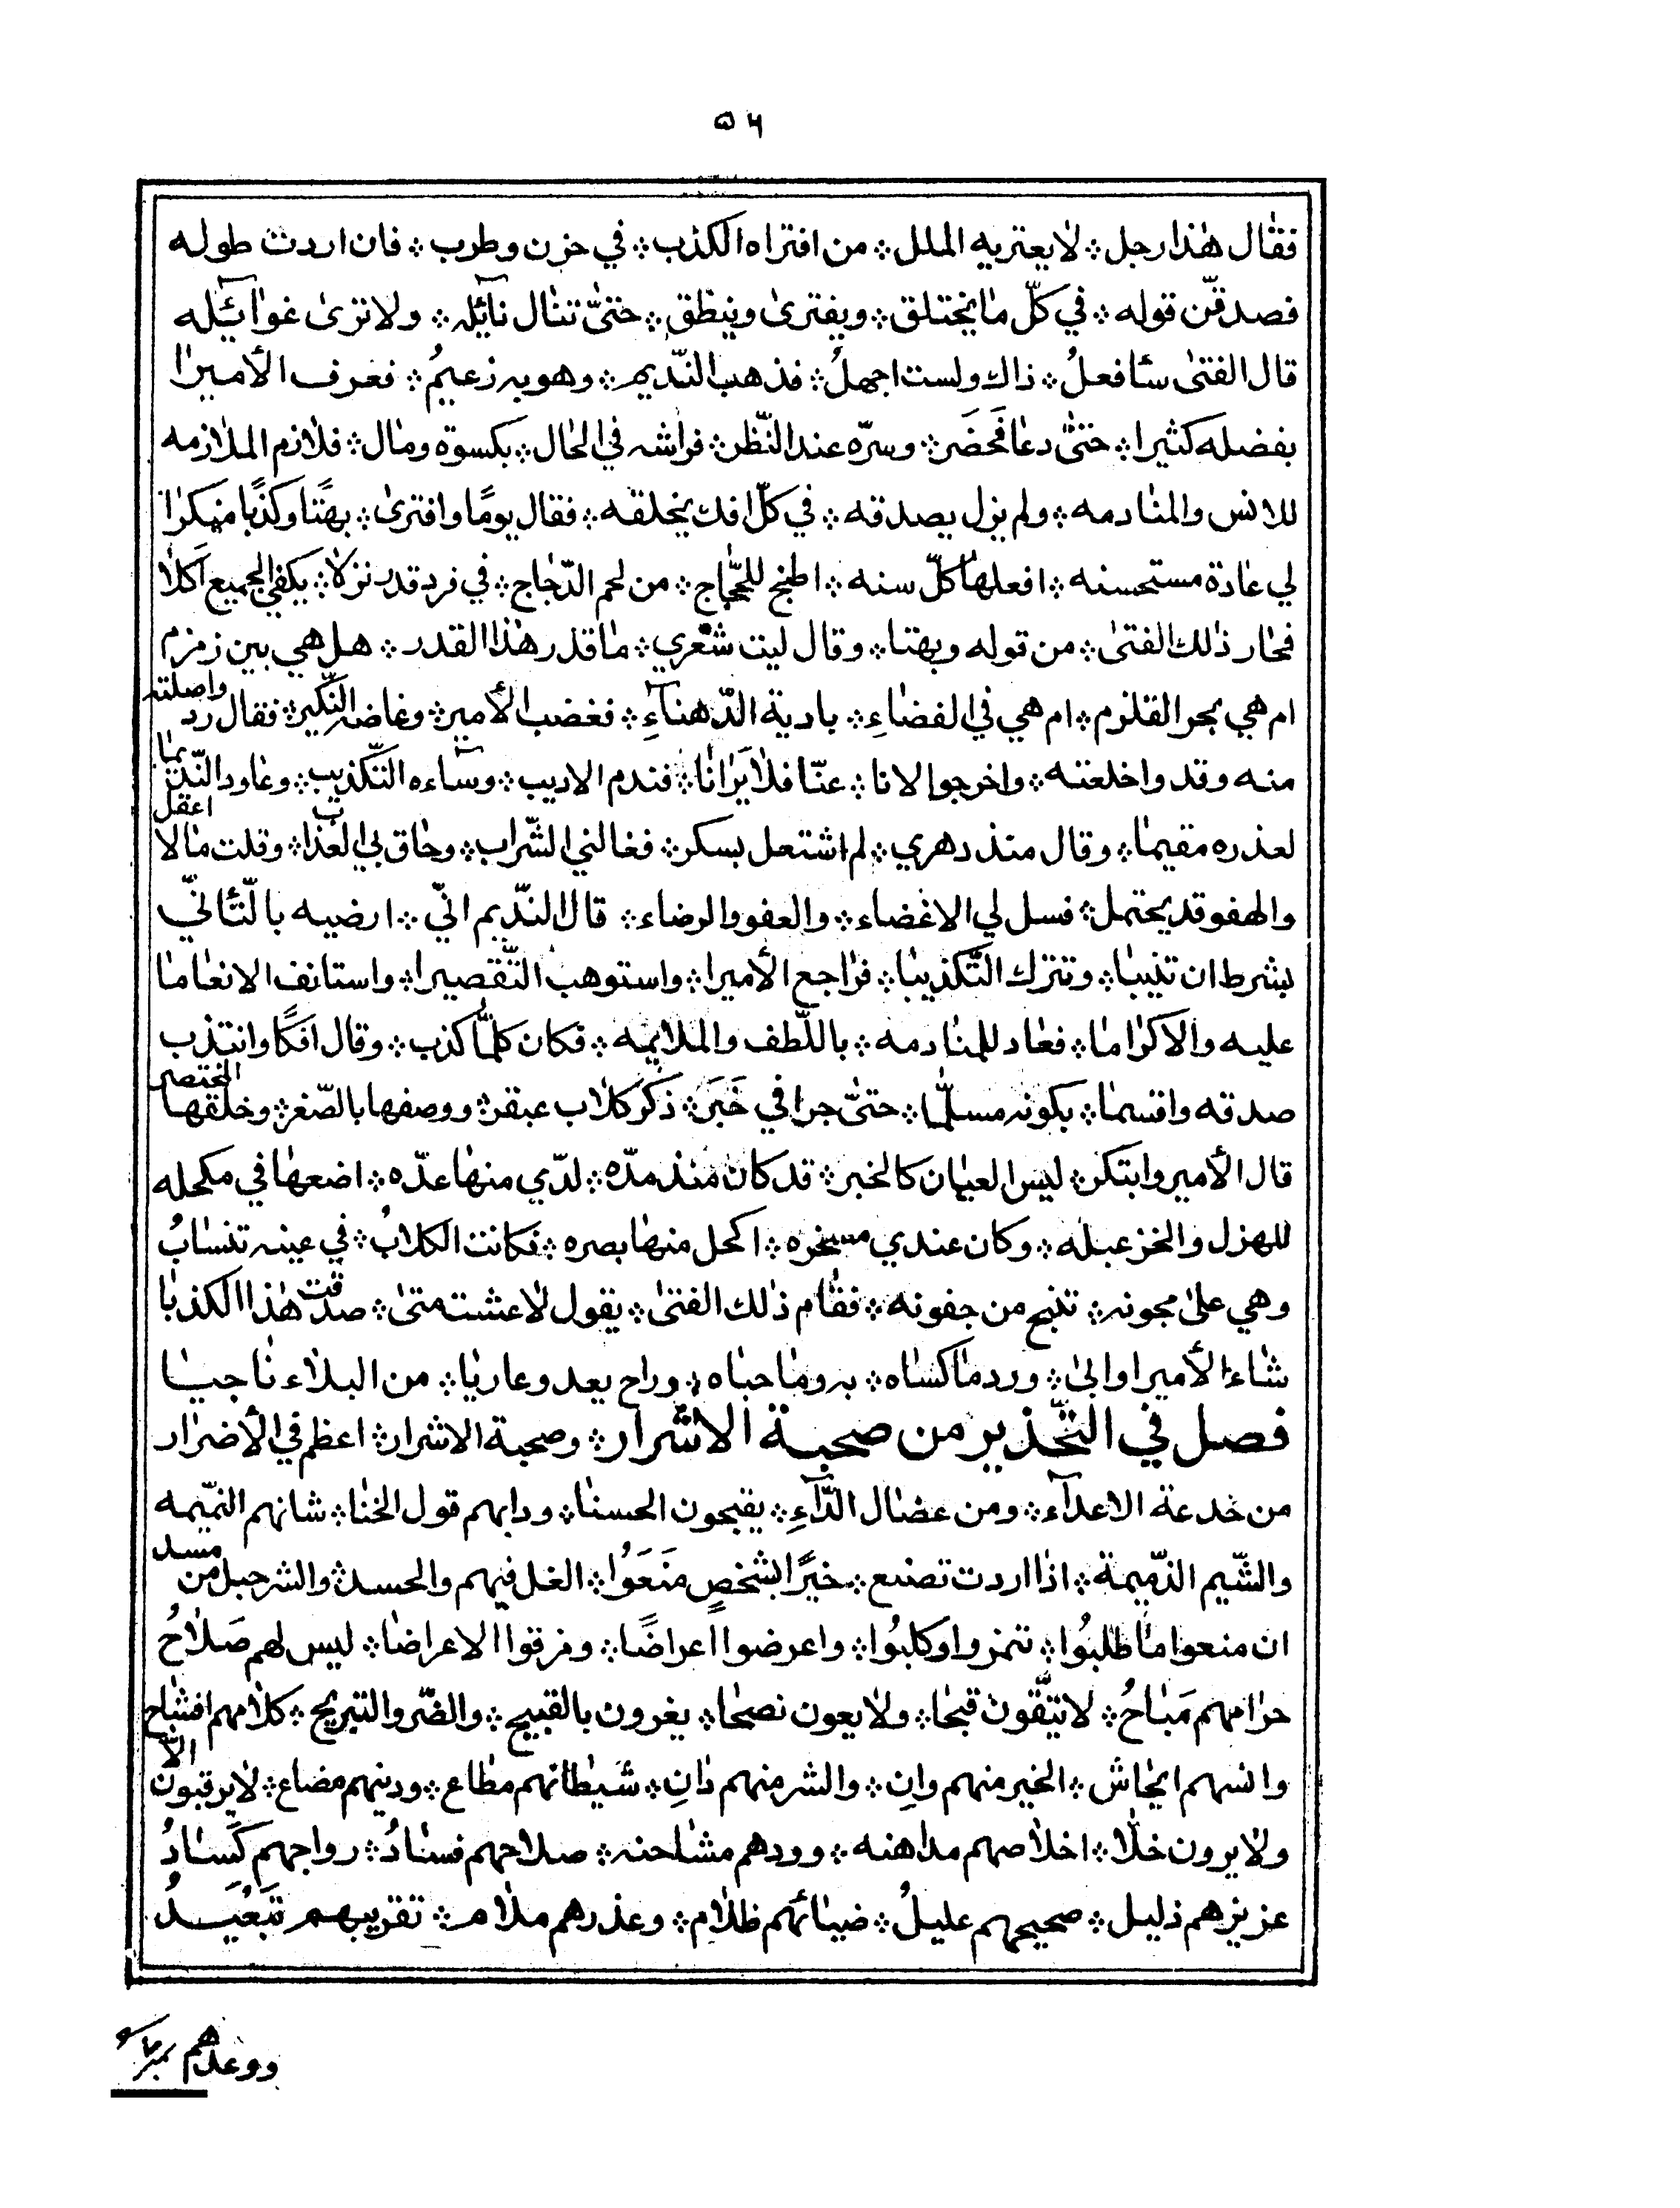 ۵۶
فقال هٰذا رجل ؞ لا يعتريه الملل ؞ من افتراه الكذب ؞ في حزن وطرب ؞ فان اردت طوله
فصدقنّ قوله ؞ في كلّ ما يختلق ؞ ويفترى وينطق ؞ حتىّٰ تنال نآئله ؞ ولا ترىٰ غوآئله
قال الفتىٰ سأفعلُ ؞ ذاك ولست اجهلُ ؞ فذهب النّديم ؞ وهو به زعيمُ ؞ فعرف الأميرا
بفضله كثيرا ؞ حتىّٰ دعا فَحَضَر ؞ وسرّه عند النّظر ؞ فراشه في الحال ؞ بكسوة ومال ؞ فلازم الملازمه
للانس والمنادمه ؞ ولم يزل يصدقه ؞ في كلّ افك يخلقه ؞ فقال يومًا وافترىٰ ؞ بهتًا وكذبًا منكرا
لي عادة مستحسنه ؞ افعلها كلّ سنه ؞ اطبخ للحجّاج ؞ من لحم الدّجاج ؞ في فرد قدر نزلا ؞ يكفي الجميع اكلا
فحار ذٰلك الفتىٰ ؞ من قوله وبهتا ؞ وقال ليت شعري ؞ ما قدر هٰذا القدر ؞ هل هي بين زمزم
ام هي بحر القلزم ؞ ام هي في الفضاءِ ؞ بادية الدّهنآءِ ؞ فغضب الأمير ؞ وغاضه النّكير ؞ فقال رد واصلته
منه وقد واخلعته ؞ واخرجوا الانا ؞ عنّا فلا يَرَانا ؞ فندم الاديب ؞ وسآءه التّكذيب ؞ وعاود النّديما
لعذره مقيما ؞ وقال منذ دهري ؞ لم اشتعل بسكر ؞ فغالني الشّراب ؞ وحاق بي العذاب ؞ وقلت ما لا اعقل
والهفو قد يحتمل ؞ فسل لي الاغضاء ؞ والعفو والرضاء ؞ قال النّديم انّي ؞ ارضيه بالتّأنّي
بشرط ان تنيبا ؞ وتترك التّكذيبا ؞ فراجع الأميرا ؞ واستوهب التّقصيرا ؞ واستانف الانعاما
عليه والاكراما ؞ فعاد للمنادمه ؞ باللّطف والملايمه ؞ فكان كلّما كذب ؞ وقال افكًا وانتدب
صدقه واقسما ؞ بكونه مسلّما ؞ حتىّٰ جرا في خَبَر ؞ ذكر كلاب عبقر ؞ ووصفها بالصّغر ؞ وخلقها المختصر
قال الأمير وابتكر ؞ ليس العيان كالخبر ؞ قد كان منذ مدّه ؞ لدّي منها عدّه ؞ اضعها في مكحله
للهزل والخزعبله ؞ وكان عندي مسخره ؞ اكحل منها بصره ؞ فكانت الكلابُ ؞ في عينه تنسابُ
وهي علىٰ مجونه ؞ تنبح من جفونه ؞ فقام ذٰلك الفتىٰ ؞ يقول لا عشت متىٰ ؞ صدقت هٰذا الكذبا
شاء الأمير او ابىٰ ؞ ورد ما كساه ؞ به وما حباه ؞ وراح يعدو عاريا ؞ من البلاء ناجيا
فصل في التّحذير من صحبة الاشرار ؞ وصحبة الاشرار ؞ اعظم في الأضرار
من خدعة الاعدآء ؞ ومن عضال الدّآءِ ؞ يقبحون الحسنا ؞ ودابهم قول الخنا ؞ شانهم النّميمه
والشّيم الذّميمة ؞ اذا اردت تصنع ؞ خيرًا لشخصٍ مَنَعَوُا ؞ الغل فيهم والحسد ؞ والشر حبل من مسد
ان منعوا ما طلبُوا ؞ تنمزوا وكلبُوا ؞ واعرضوا اعراضًا ؞ ومزقوا الاعراضا ؞ ليس لهم صَلاحُ
حرامهم مَبَاحُ ؞ لا يتّقون قبحا ؞ ولا يعون نصحا ؞ يغرون بالقبيح ؞ والضّر والتبريح ؞ كلامهم افتباح
وانسهم ايحاش ؞ الخير منهم وانِ ؞ والشر منهم دانِ ؞ شَيطانهم مطاع ؞ ودينهم مضاع ؞ لا يرقبون الاّ
ولا يرون خلّا ؞ اخلاصهم مداهنه ؞ وودهم مشاحنه ؞ صلاحهم فسادُ ؞ رواجهم كَسَادُ
عزيزهم ذليل ؞ صحيحهم عليلُ ؞ ضيائهم ظلام ؞ وعذرهم ملام ؞ تقريبهم تبَعُيَدُ
ووعدهم